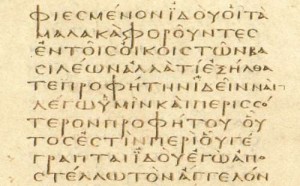 ΦΙΕΣΜΕΝΟΝΪΔΟΥΟΙΤΑ
ΜΑΛΑΚΑΦΟΡΟΥΝΤΕΣ
ΕΝΤΟΙΣΟΙΚΟΙΣΤΩΝΒΑ
ΣΙΛΕΩΝΑΛΛΑΤΙΕΞΗΛΘΑ
ΤΕΠΡΟΦΗΤΗΝΙΔΕΙΝΝΑΙ
ΛΕΓΩΥΜΙΝΚΑΙΠΕΡΙΣΣΟ
ΤΕΡΟΝΠΡΟΦΗΤΟΥΟΥ
ΤΟΣΕΣΤΙΝΠΕΡΙΟΥΓΕ
ΓΡΑΠΤΑΙΪΔΟΥΕΓΩΑΠΟ
ΣΤΕΛΛΩΤΟΝΑΓΓΕΛΟΝ